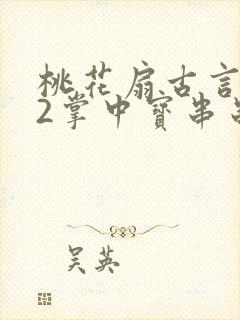 桃花扇古言
2掌中寶串
吴英